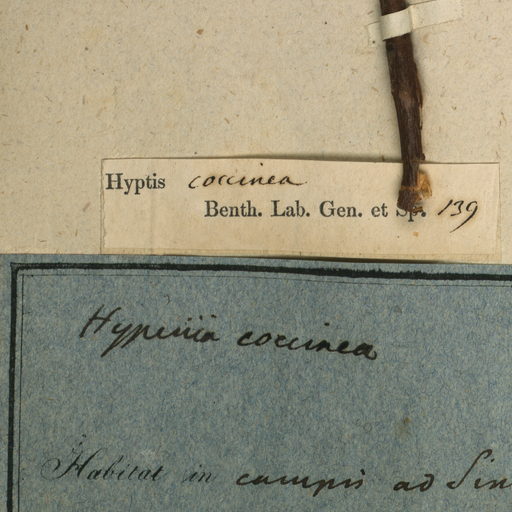 Hyptis coccinea
Benth. Lab. Gen. et Sp. 139
Hypenia coccinea
Habitat in campis ad Sin